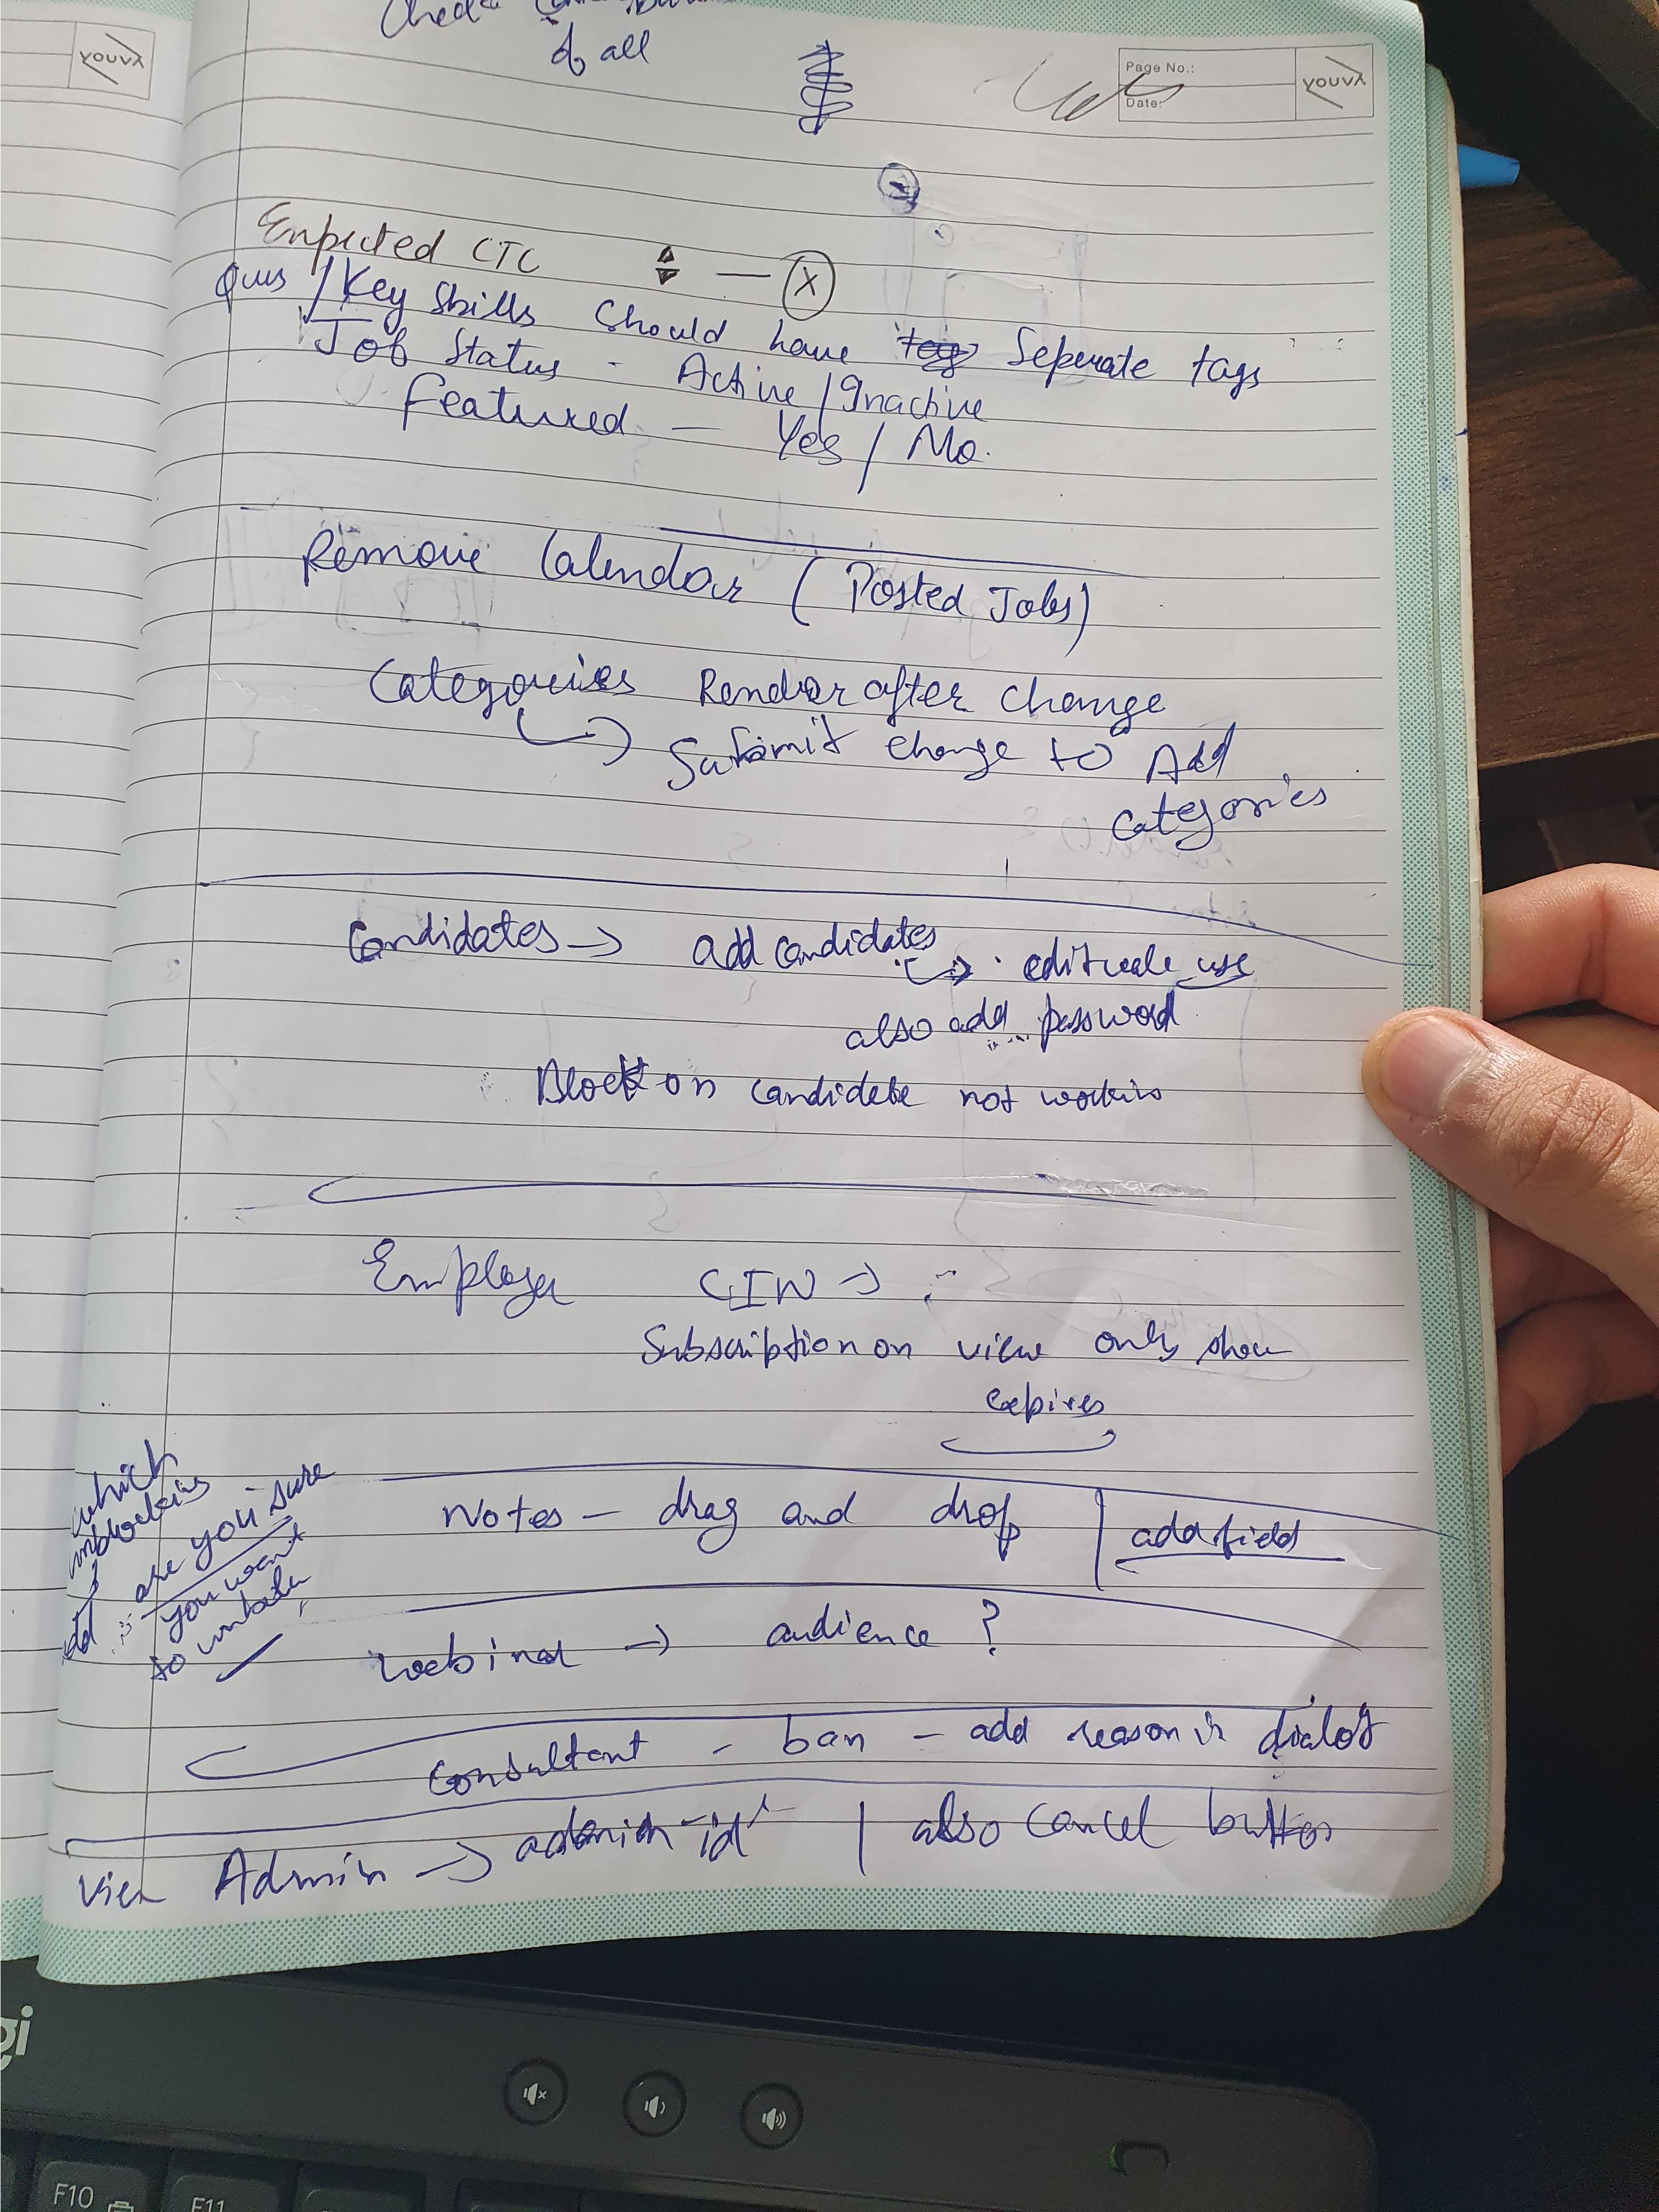 of all
Page No.:
Date:
YOUVA
YOUVA
Expected CTC — X
Ques / Key Skills Should have Seperate tags
Job Status - Active / Inactive
Featured — Yes / No.
Remove Calendar (Posted Jobs)
Categories Render after change
Submit change to Add
categories
Candidates → add candidates
use
also add password
Block on candidate not workin
Employer CIN → :
Subscription on view only show
expires
Notes - drag and drop | add field
which
unblocking
are you sure
you want
to
webinar → audience ?
Consultant - ban - add reason in dialog
View Admin → id | also Cancel button
F10
F11